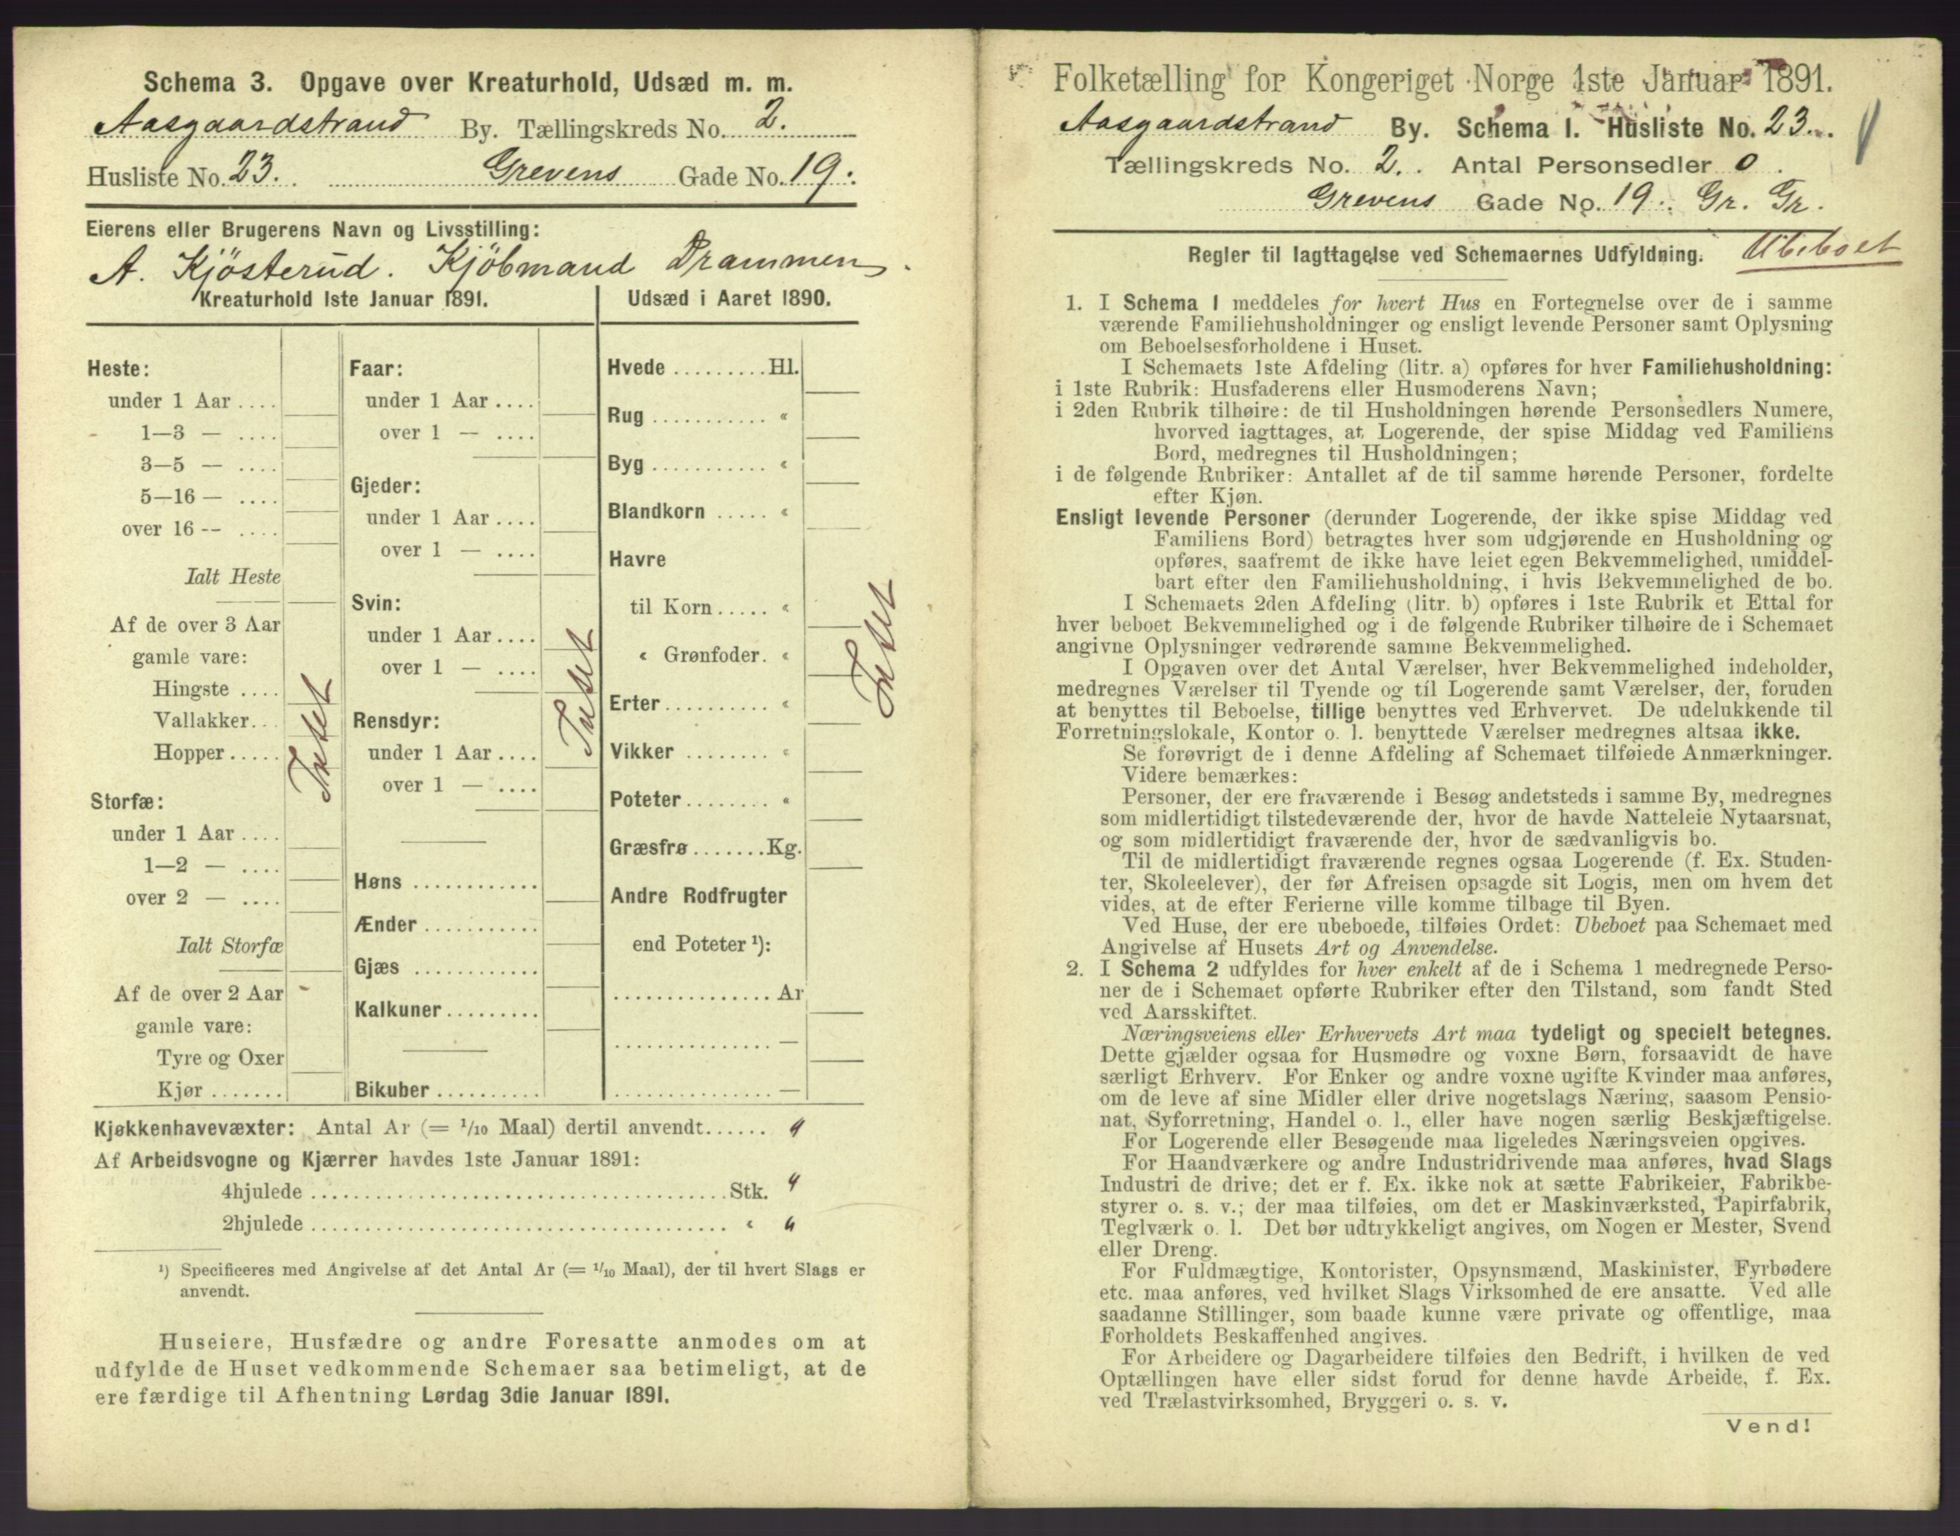 Schema 3. Opgave over Kreaturhold, Udsæd m. m.
Aasgaardstrand By. Tællingskreds No. 2.
Husliste No. 23. Grevens Gade No. 19.
Eierens eller Brugerens Navn og Livsstilling:
A. Kjösterud. Kjöbmand Drammen.
Kreaturhold 1ste Januar 1891.
Heste:
under 1 Aar ....
1—3 — ....
3—5 — ....
5—16 — ....
over 16 -- ....
Ialt Heste
Af de over 3 Aar
gamle vare:
Hingste ....
Vallakker...
Hopper.....
Storfæ:
under 1 Aar ....
1—2 — ....
over 2 — ....
Ialt Storfæ
Af de over 2 Aar
gamle vare:
Tyre og Oxer
Kjør .......
Intet
Faar:
under 1 Aar ....
over 1 — ....
Gjeder:
under 1 Aar ....
over 1 — ....
Svin:
under 1 Aar ....
over 1 — ....
Rensdyr:
under 1 Aar ....
over 1 — ....
Høns ............
Ænder ...........
Gjæs ............
Kalkuner.........
Bikuber ..........
Intet
Udsæd i Aaret 1890.
Hvede .........Hl.
Rug ........... «
Byg ........... «
Blandkorn ..... «
Havre
til Korn..... «
« Grønfoder. «
Erter.......... «
Vikker ........ «
Poteter........ «
Græsfrø .......Kg.
Andre Rodfrugter
end Poteter ¹):
............... Ar
............... —
............... —
Intet
Kjøkkenhavevæxter: Antal Ar (= 1/10 Maal) dertil anvendt...... "
Af Arbeidsvogne og Kjærrer havdes 1ste Januar 1891:
4hjulede ........................................ Stk. "
2hjulede ........................................ « "
¹) Specificeres med Angivelse af det Antal Ar (= 1/10 Maal), der til hvert Slags er
anvendt.
Huseiere, Husfædre og andre Foresatte anmodes om at
udfylde de Huset vedkommende Schemaer saa betimeligt, at de
ere færdige til Afhentning Lørdag 3die Januar 1891.
Folketælling for Kongeriget Norge 1ste Januar 1891.
Aasgaardstrand By. Schema 1. Husliste No. 23.
Tællingskreds No. 2. Antal Personsedler 0.
Grevens Gade No. 19. Gr. Gr.
Regler til Iagttagelse ved Schemaernes Udfyldning. Ubeboet
1. I Schema 1 meddeles for hvert Hus en Fortegnelse over de i samme
værende Familiehusholdninger og ensligt levende Personer samt Oplysning
om Beboelsesforholdene i Huset.
I Schemaets 1ste Afdeling (litr. a) opføres for hver Familiehusholdning:
i 1ste Rubrik: Husfaderens eller Husmoderens Navn;
i 2den Rubrik tilhøire: de til Husholdningen hørende Personsedlers Numere,
hvorved iagttages, at Logerende, der spise Middag ved Familiens
Bord, medregnes til Husholdningen;
i de følgende Rubriker: Antallet af de til samme hørende Personer, fordelte
efter Kjøn.
Ensligt levende Personer (derunder Logerende, der ikke spise Middag ved
Familiens Bord) betragtes hver som udgjørende en Husholdning og
opføres, saafremt de ikke have leiet egen Bekvemmelighed, umiddel-
bart efter den Familiehusholdning, i hvis Bekvemmelighed de bo.
I Schemaets 2den Afdeling (litr. b) opføres i 1ste Rubrik et Ettal for
hver beboet Bekvemmelighed og i de følgende Rubriker tilhøire de i Schemaet
angivne Oplysninger vedrørende samme Bekvemmelighed.
I Opgaven over det Antal Værelser, hver Bekvemmelighed indeholder,
medregnes Værelser til Tyende og til Logerende samt Værelser, der, foruden
at benyttes til Beboelse, tillige benyttes ved Erhvervet. De udelukkende til
Forretningslokale, Kontor o. l. benyttede Værelser medregnes altsaa ikke.
Se forøvrigt de i denne Afdeling af Schemaet tilføiede Anmærkninger.
Videre bemærkes:
Personer, der ere fraværende i Besøg andetsteds i samme By, medregnes
som midlertidigt tilstedeværende der, hvor de havde Natteleie Nytaarsnat,
og som midlertidigt fraværende der, hvor de sædvanligvis bo.
Til de midlertidigt fraværende regnes ogsaa Logerende (f. Ex. Studen-
ter, Skoleelever), der før Afreisen opsagde sit Logis, men om hvem det
vides, at de efter Ferierne ville komme tilbage til Byen.
Ved Huse, der ere ubeboede, tilføies Ordet: Ubeboet paa Schemaet med
Angivelse af Husets Art og Anvendelse.
2. I Schema 2 udfyldes for hver enkelt af de i Schema 1 medregnede Perso-
ner de i Schemaet opførte Rubriker efter den Tilstand, som fandt Sted
ved Aarsskiftet.
Næringsveiens eller Erhvervets Art maa tydeligt og specielt betegnes.
Dette gjælder ogsaa for Husmødre og voxne Børn, forsaavidt de have
særligt Erhverv. For Enker og andre voxne ugifte Kvinder maa anføres,
om de leve af sine Midler eller drive nogetslags Næring, saasom Pensio-
nat, Syforretning, Handel o. l., eller have nogen særlig Beskjæftigelse.
For Logerende eller Besøgende maa ligeledes Næringsveien opgives.
For Haandværkere og andre Industridrivende maa anføres, hvad Slags
Industri de drive; det er f. Ex. ikke nok at sætte Fabrikeier, Fabrikbe-
styrer o. s. v.; der maa tilføies, om det er Maskinværksted, Papirfabrik,
Teglværk o. l. Det bør udtrykkeligt angives, om Nogen er Mester, Svend
eller Dreng.
For Fuldmægtige, Kontorister, Opsynsmænd, Maskinister, Fyrbødere
etc. maa anføres, ved hvilket Slags Virksomhed de ere ansatte. Ved alle
saadanne Stillinger, som baade kunne være private og offentlige, maa
Forholdets Beskaffenhed angives.
For Arbeidere og Dagarbeidere tilføies den Bedrift, i hvilken de ved
Optællingen have eller sidst forud for denne havde Arbeide, f. Ex.
ved Trælastvirksomhed, Bryggeri o. s. v.
Vend!